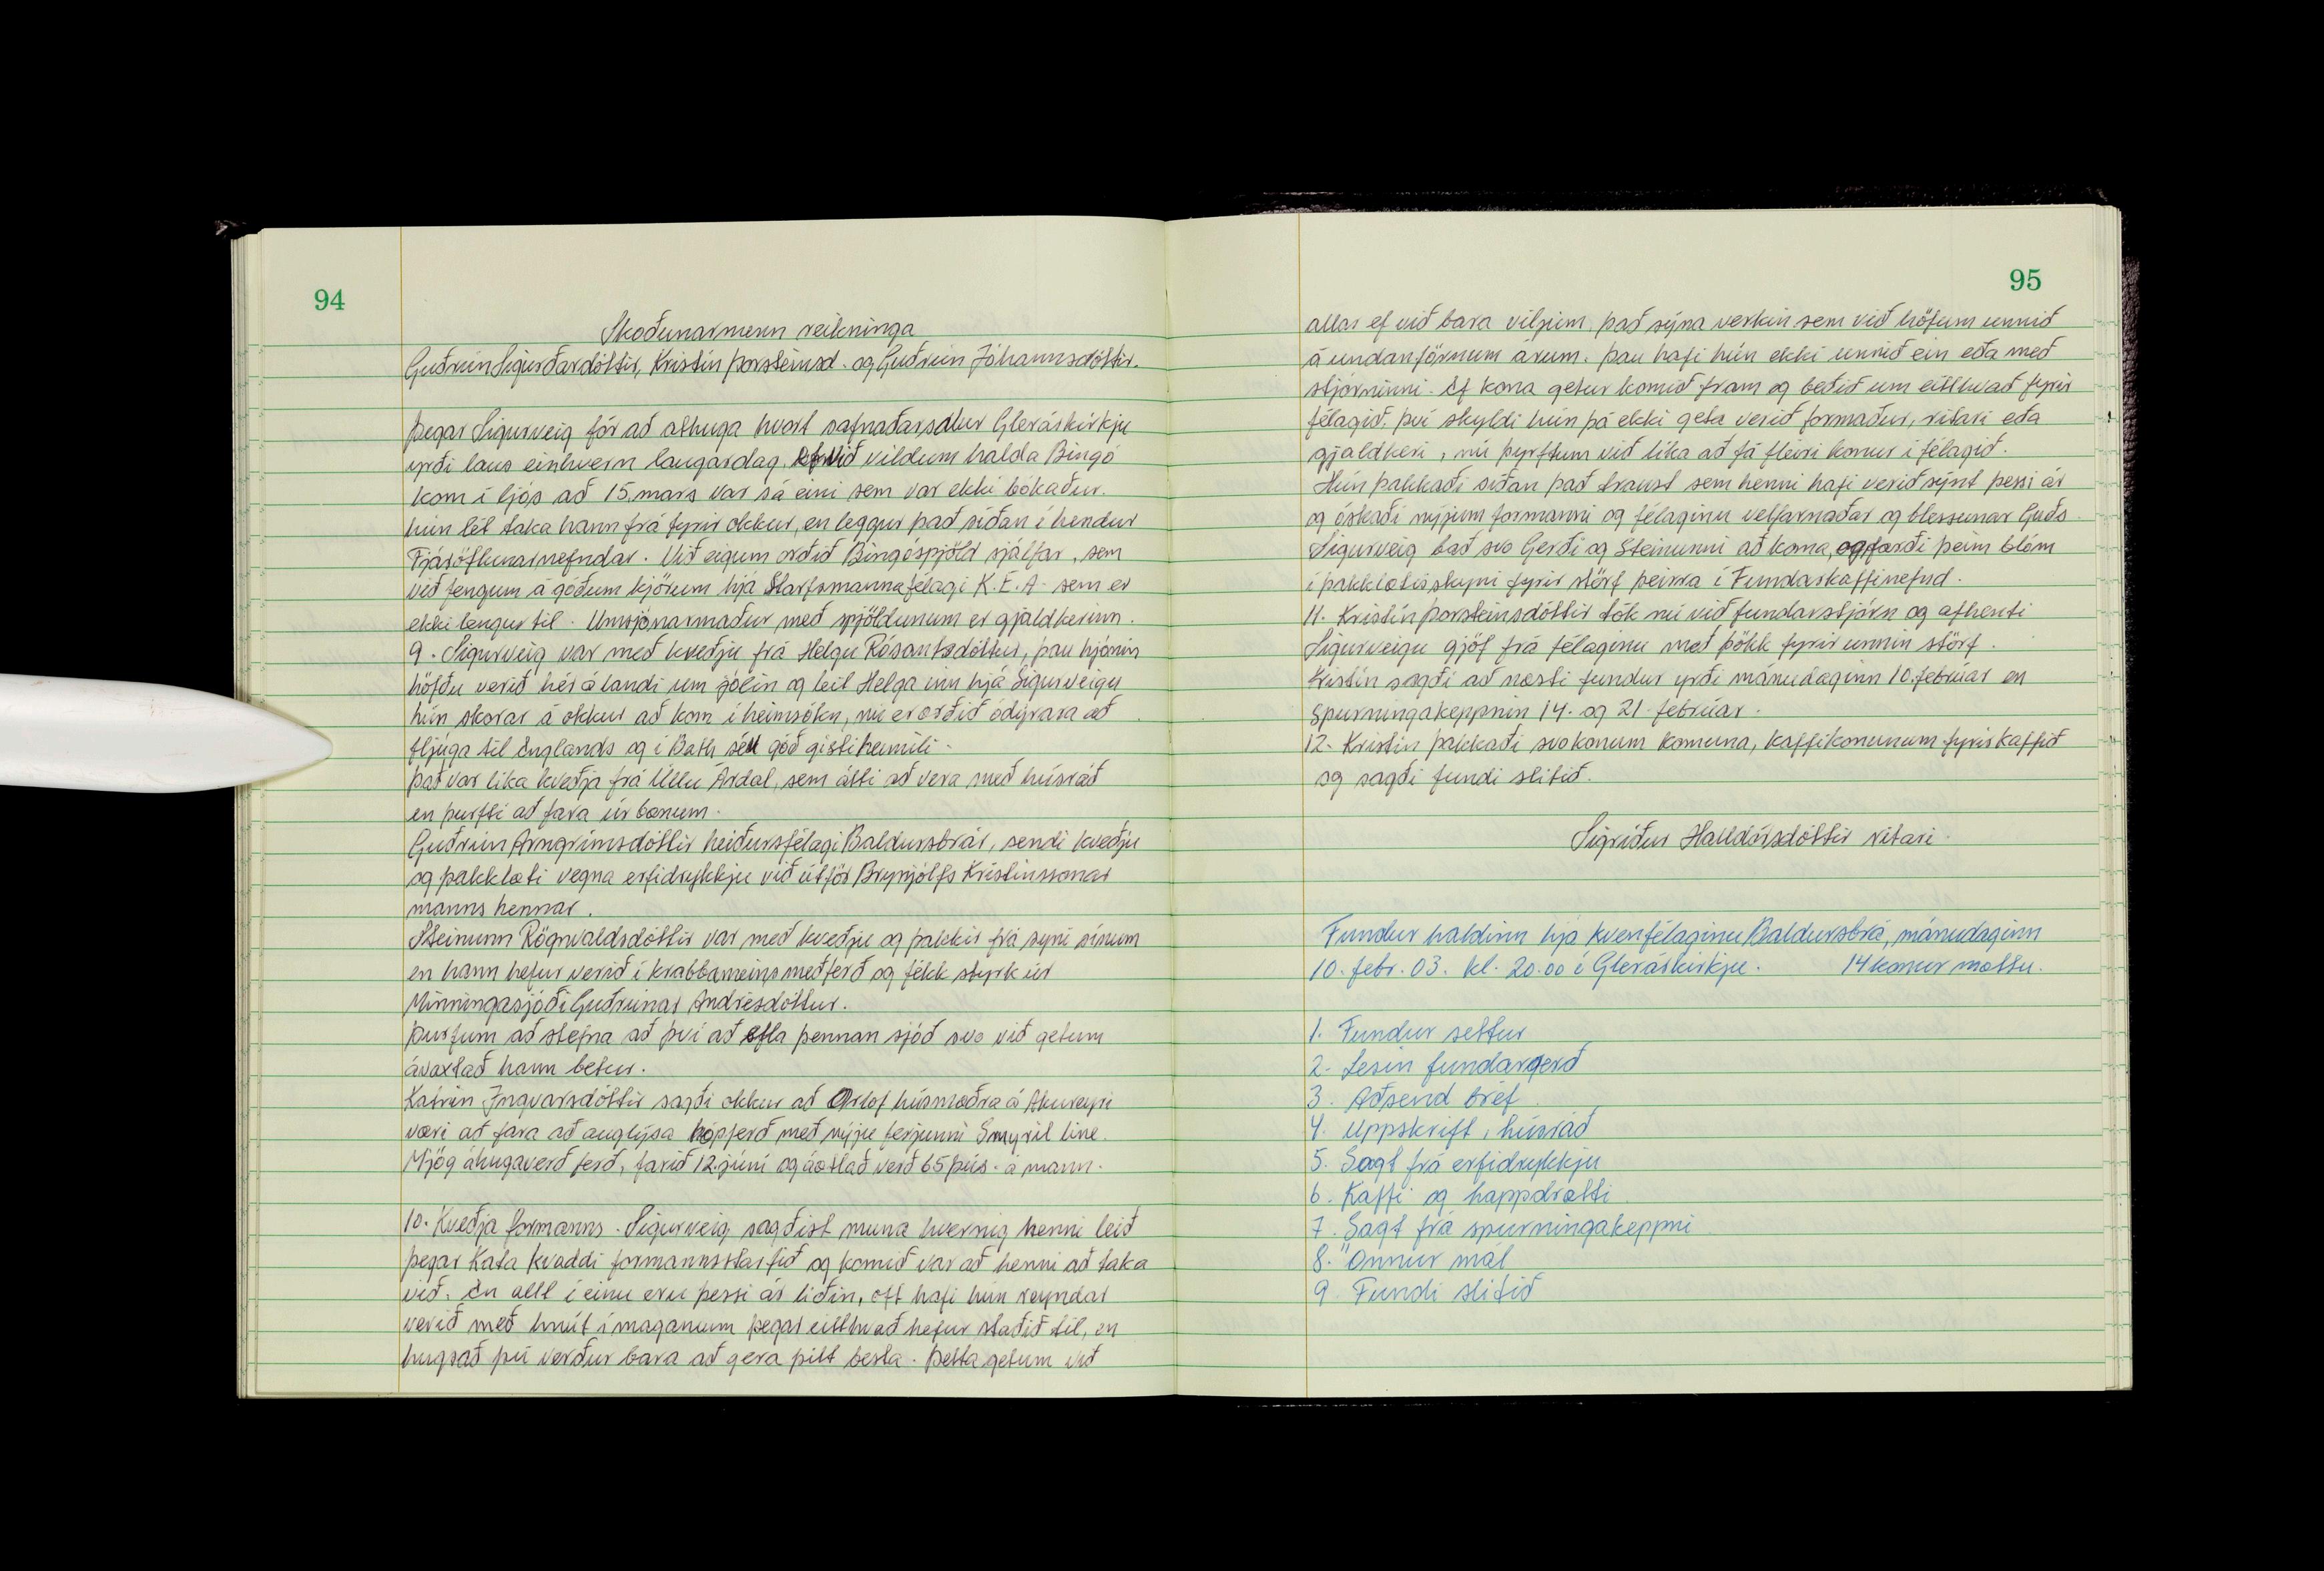 94
Skoðunarmenn reikninga
Guðrún Sigurðardóttir, Kristín Þorsteinsd. og Guðrún Jóhannsdóttir.
Þegar Sigurveig fór að athuga hvort safnaðarsalur Glerárkirkju
yrði laus einhvern laugardag, ef við vildum halda Bingó
kom í ljós að 15. mars var sá eini sem var ekki bókaður.
hún lét taka hann frá fyrir okkur, en leggur það síðan í hendur
Fjáröflunarnefndar. Við eigum orðið Bingóspjöld sjálfar, sem
við fengum á góðum kjörum hjá Starfsmannafélagi K.E.A. sem er
ekki lengur til. Umsjónarmaður með spjöldunum er gjaldkerinn.
9. Sigurveig var með kveðju frá Helgu Rósantsdóttur, þau hjónin
höfðu verið hér á landi um jólin og leit Helga inn hjá Sigurveigu
hún skorar á okkur að kom í heimsókn, nú er orðið ódýrara að
fljúga til Englands og í Bath séu góð gistiheimili.
Það var líka kveðja frá Ullu Árdal, sem átti að vera með húsráð
en þurfti að fara úr bænum.
Guðrún Arngrímsdóttir heiðursfélagi Baldursbrár, sendi kveðju
og þakklæti vegna erfidrykkju við útför Brynjólfs Kristinssonar
manns hennar.
Steinunn Rögnvaldsdóttir var með kveðju og þakkir frá syni sínum
en hann hefur verið í krabbameinsmeðferð og fékk styrk úr
Minningasjóði Guðrúnar Andrésdóttur.
Þurfum að stefna að því að efla þennan sjóð svo við getum
ávaxtað hann betur.
Katrín Ingvarsdóttir sagði okkur að Orlof húsmæðra á Akureyri
væri að fara að auglýsa hópferð með nýju ferjunni Smyril line.
Mjög áhugaverð ferð, farið 12. júní og áætlað verð 65 þús. á mann.
10. Kveðja formanns. Sigurveig sagðist muna hvernig henni leið
þegar Kata kvaddi formannsstarfið og komið var að henni að taka
við. En allt í einu eru þessi ár liðin, oft hafi hún reyndar
verið með hnút í maganum þegar eitthvað hefur staðið til, en
hugsað þú verður bara að gera þitt besta. Þetta getum við
95
allar ef við bara viljum. Það sýna verkin sem við höfum unnið
á undanförnum árum. Þau hafi hún ekki unnið ein eða með
stjórninni. Ef kona getur komið fram og beðið um eitthvað fyrir
félagið. Því skyldi hún þá ekki geta verið formaður, ritari eða
gjaldkeri, nú þyrftum við líka að fá fleiri konur í félagið.
Hún þakkaði síðan það traust sem henni hafi verið sýnt þessi ár
og óskaði nýjum formanni og félaginu velfarnaðar og blessunar Guðs.
Sigurveig bað svo Gerði og Steinunni að koma, og færði þeim blóm
í þakklætisskyni fyrir störf þeirra í Fundarkaffinefnd.
11. Kristín Þorsteinsdóttir tók nú við fundarstjórn og afhenti
Sigurveigu gjöf frá félaginu með þökk fyrir unnin störf.
Kristín sagði að næsti fundur yrði mánudaginn 10. febrúar en
spurningakeppnin 14. og 21. febrúar.
12. Kristín þakkaði svo konum komuna, kaffikonunum fyrir kaffið
og sagði fundi slitið.
Sigríður Halldórsdóttir ritari.
Fundur haldinn hjá kvenfélaginu Baldursbrá, mánudaginn
10. febr. 03. kl. 20.00 í Glerárkirkju. 14 konur mættu.
1. Fundur settur
2. Lesin fundargerð
3. Aðsend bréf
4. Uppskrift, húsráð
5. Sagt frá erfidrykkju
6. Kaffi og happdrætti
7. Sagt frá spurningakeppni
8. Önnur mál
9. Fundi slitið